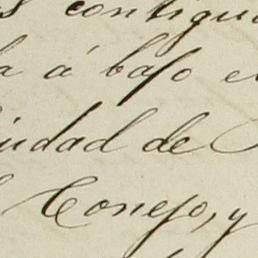 contigu
á bajo e
iudad de
Conejo, y